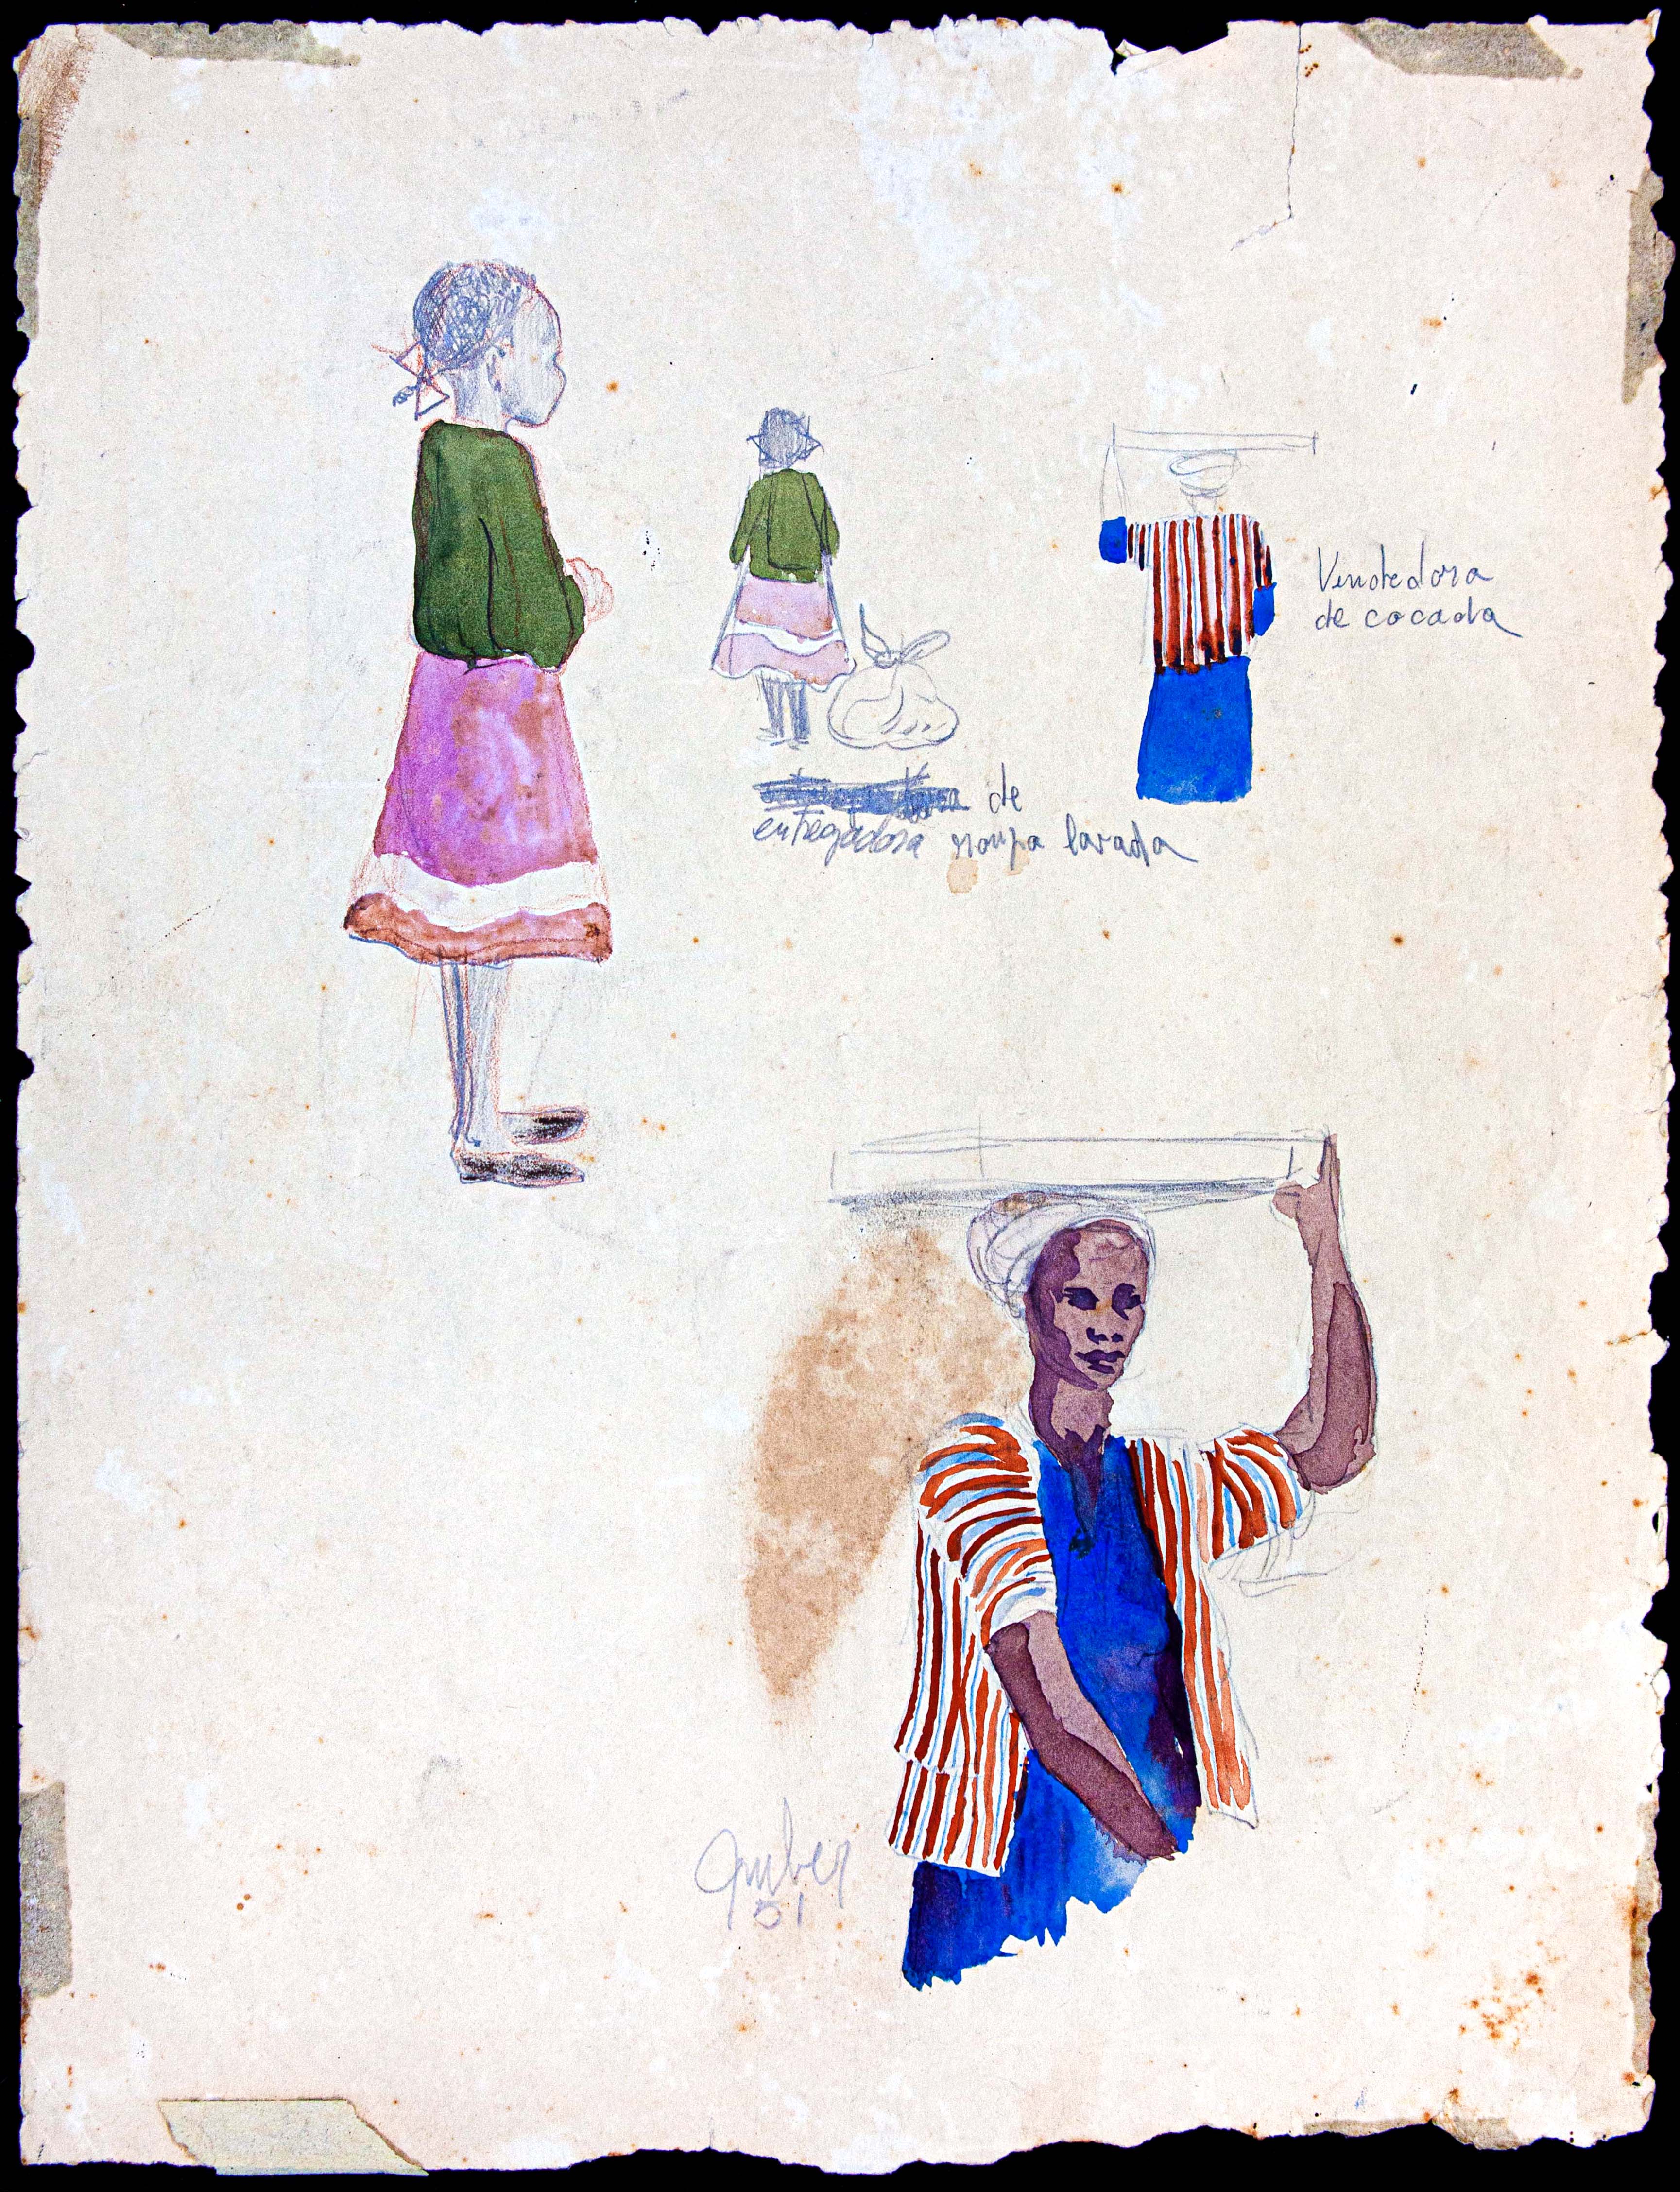 Vendedora
de cocada
de
entregadora roupa lavada
Gruber
51